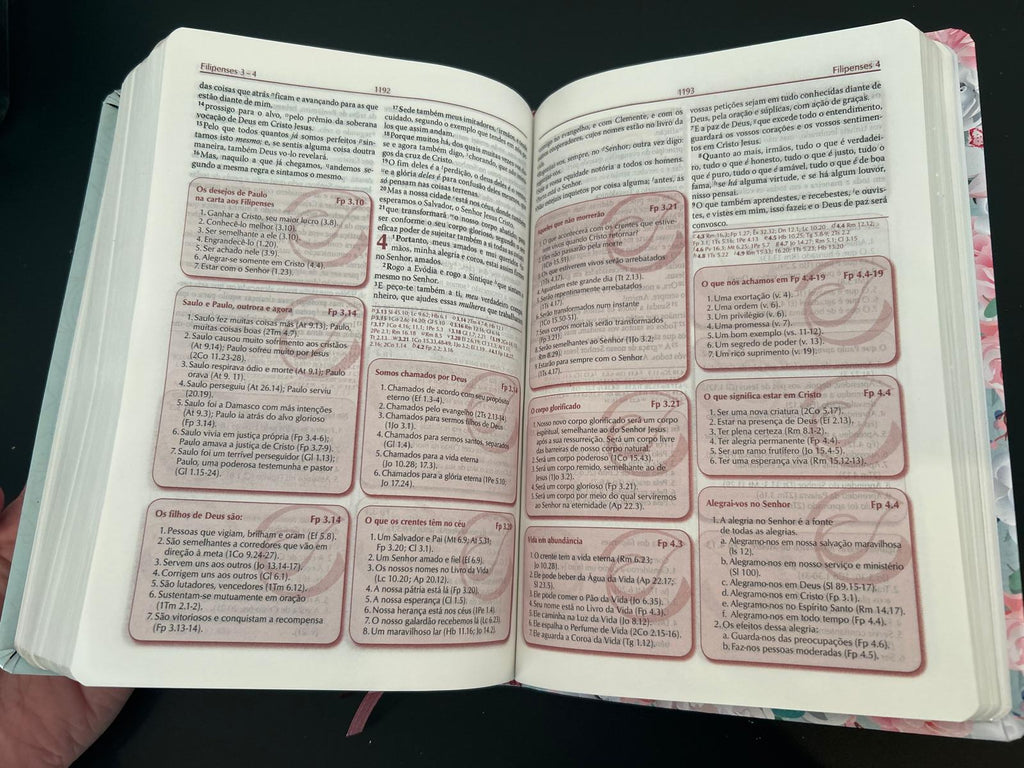 Filipenses 3 – 4
1192
das coisas que atrás ficam e avançando para as que
estão diante de mim,
14 prossigo para o alvo, pelo prêmio da soberana
vocação de Deus em Cristo Jesus.
15 Pelo que todos quantos já somos perfeitos sin-
tamos isto mesmo; e, se sentis alguma coisa doutra
maneira, também Deus vo-lo revelará.
16 Mas, naquilo a que já chegamos, andemos se-
gundo a mesma regra e sintamos o mesmo.
Os desejos de Paulo
na carta aos Filipenses Fp 3.10
1. Ganhar a Cristo, seu maior lucro (3.8).
2. Conhecê-lo melhor (3.10).
3. Ser semelhante a ele (3.10).
4. Engrandecê-lo (1.20).
5. Ser achado nele (3.9).
6. Alegrar-se somente em Cristo (4.4).
7. Estar com o Senhor (1.23).
Saulo e Paulo, outrora e agora Fp 3.14
1. Saulo fez muitas coisas más (At 9.13); Paulo,
muitas coisas boas (2Tm 4.7).
2. Saulo causou muito sofrimento aos cristãos
(At 9.14); Paulo sofreu muito por Jesus
(2Co 11.23-28).
3. Saulo respirava ódio e morte (At 9.1); Paulo
orava (At 9. 11).
4. Saulo perseguiu (At 26.14); Paulo serviu
(20.19).
5. Saulo foi a Damasco com más intenções
(At 9.3); Paulo ia atrás do alvo glorioso
(Fp 3.14).
6. Saulo vivia em justiça própria (Fp 3.4-6);
Paulo amava a justiça de Cristo (Fp 3.7-9).
7. Saulo foi um terrível perseguidor (Gl 1.13);
Paulo, uma poderosa testemunha e pastor
(Gl 1.15-24).
Os filhos de Deus são: Fp 3.14
1. Pessoas que vigiam, brilham e oram (Ef 5.8).
2. São semelhantes a corredores que vão em
direção à meta (1Co 9.24-27).
3. Servem uns aos outros (Jo 13.14-17).
4. Corrigem uns aos outros (Gl 6.1).
5. São lutadores, vencedores (1Tm 6.12).
6. Sustentam-se mutuamente em oração
(1Tm 2.1-2).
7. São vitoriosos e conquistam a recompensa
(Fp 3.13-14).
17 Sede também meus imitadores, irmãos, e
cuidado, segundo o exemplo que tendes em
los que assim andam.
18 Porque muitos há, dos quais muitas vezes vos
se e agora também digo, chorando, que são
gos da cruz de Cristo.
19 O fim deles é a perdição, o deus deles é o ventre,
e a glória deles é para confusão deles mesmos, que
só pensam nas coisas terrenas.
20 Mas a nossa cidade está nos céus, donde também
esperamos o Salvador, o Senhor Jesus Cristo,
21 que transformará o nosso corpo abatido, para
ser conforme o seu corpo glorioso, segundo o seu
eficaz poder de sujeitar também a si todas as coisas.
4 1 Portanto, meus amados e mui queridos ir-
mãos, minha alegria e coroa, estai assim firmes
no Senhor, amados.
2 Rogo a Evódia e rogo a Síntique que sintam o
mesmo no Senhor.
3 E peço-te também a ti, meu verdadeiro compa-
nheiro, que ajudes essas mulheres que trabalharam
Somos chamados por Deus Fp 3.14
1. Chamados de acordo com seu propósito
eterno (Ef 1.3-4).
2. Chamados pelo evangelho (2Ts 2.13-14).
3. Chamados para sermos filhos de Deus
(1Jo 3.1).
4. Chamados para sermos santos, separados
(Gl 1.4).
5. Chamados para a vida eterna
(Jo 10.28; 17.3).
6. Chamados para a glória eterna (1Pe 5.10;
Jo 17.24).
O que os crentes têm no céu Fp 3.20
1. Um Salvador e Pai (Mt 6.9; At 5.31;
Fp 3.20; Cl 3.1).
2. Um Senhor amado e fiel (Ef 6.9).
3. Os nossos nomes no Livro da Vida
(Lc 10.20; Ap 20.12).
4. A nossa pátria está lá (Fp 3.20).
5. A nossa esperança (Cl 1.5).
6. Nossa herança está nos céus (1Pe 1.4).
7. O nosso galardão recebemos lá (Lc 6.23).
8. Um maravilhoso lar (Hb 11.16; Jo 14.2).
1193
Filipenses 4
no evangelho, e com Clemente, e com os
cooperadores, cujos nomes estão no livro da
vos, sempre, no Senhor; outra vez digo:
a vossa equidade notória a todos os homens.
o Senhor.
estejais inquietos por coisa alguma; antes, as
Aqueles que não morrerão Fp 3.21
O que acontecerá com os crentes que estive-
rem vivos quando Cristo retornar?
1. Não passarão pela morte
(1Co 15.51).
Os que estiverem vivos serão arrebatados
(1Ts 4.17).
Aguardam este grande dia (Tt 2.13).
Serão repentinamente arrebatados
(1Ts 4.17).
Serão transformados num instante
(1Co 15.50-51).
Seus corpos mortais serão transformados
(Fp 3.21).
Serão semelhantes ao Senhor (1Jo 3.2;
Rm 8.29).
Estarão para sempre com o Senhor
(1Ts 4.17).
O corpo glorificado Fp 3.21
1. Nosso novo corpo glorificado será um corpo
espiritual, semelhante ao do Senhor Jesus
após a sua ressurreição. Será um corpo livre
das barreiras de nosso corpo natural.
2. Será um corpo poderoso (1Co 15.43).
3. Será um corpo remido, semelhante ao de
Jesus (1Jo 3.2).
4. Será um corpo glorioso (Fp 3.21).
5. Será um corpo por meio do qual serviremos
ao Senhor na eternidade (Ap 22.3).
Vida em abundância Fp 4.3
1. O crente tem a vida eterna (Rm 6.23;
Jo 10.28).
2. Ele pode beber da Água da Vida (Ap 22.17;
Sl 23.5).
3. Ele pode comer o Pão da Vida (Jo 6.35).
4. Seu nome está no Livro da Vida (Fp 4.3).
5. Ele caminha na Luz da Vida (Jo 8.12).
6. Ele espalha o Perfume de Vida (2Co 2.15-16).
7. Ele aguarda a Coroa da Vida (Tg 1.12).
vossas petições sejam em tudo conhecidas diante de
Deus, pela oração e súplicas, com ação de graças.
7 E a paz de Deus, que excede todo o entendimento,
guardará os vossos corações e os vossos sentimen-
tos em Cristo Jesus.
8 Quanto ao mais, irmãos, tudo o que é verdadei-
ro, tudo o que é honesto, tudo o que é justo, tudo o
que é puro, tudo o que é amável, tudo o que é de boa
fama, se há alguma virtude, e se há algum louvor,
nisso pensai.
9 O que também aprendestes, e recebestes, e ouvis-
tes, e vistes em mim, isso fazei; e o Deus de paz será
convosco.
O que nós achamos em Fp 4.4-19 Fp 4.4-19
1. Uma exortação (v. 4).
2. Uma ordem (v. 6).
3. Um privilégio (v. 6).
4. Uma promessa (v. 7).
5. Um bom exemplo (vs. 11-12).
6. Um segredo de poder (v. 13).
7. Um rico suprimento (v. 19).
O que significa estar em Cristo Fp 4.4
1. Ser uma nova criatura (2Co 5.17).
2. Estar na presença de Deus (Ef 2.13).
3. Ter plena certeza (Rm 8.1-2).
4. Ter alegria permanente (Fp 4.4).
5. Ser um ramo frutífero (Jo 15.4-5).
6. Ter uma esperança viva (Rm 15.12-13).
Alegrai-vos no Senhor Fp 4.4
1. A alegria no Senhor é a fonte
de todas as alegrias.
a. Alegramo-nos em nossa salvação maravilhosa
(Is 12).
b. Alegramo-nos em nosso serviço e ministério
(Sl 100).
c. Alegramo-nos em Deus (Sl 89.15-17).
d. Alegramo-nos em Cristo (Fp 3.1).
e. Alegramo-nos no Espírito Santo (Rm 14.17).
f. Alegramo-nos em todo tempo (Fp 4.4).
2. Os efeitos dessa alegria:
a. Guarda-nos das preocupações (Fp 4.6).
b. Faz-nos pessoas moderadas (Fp 4.5).